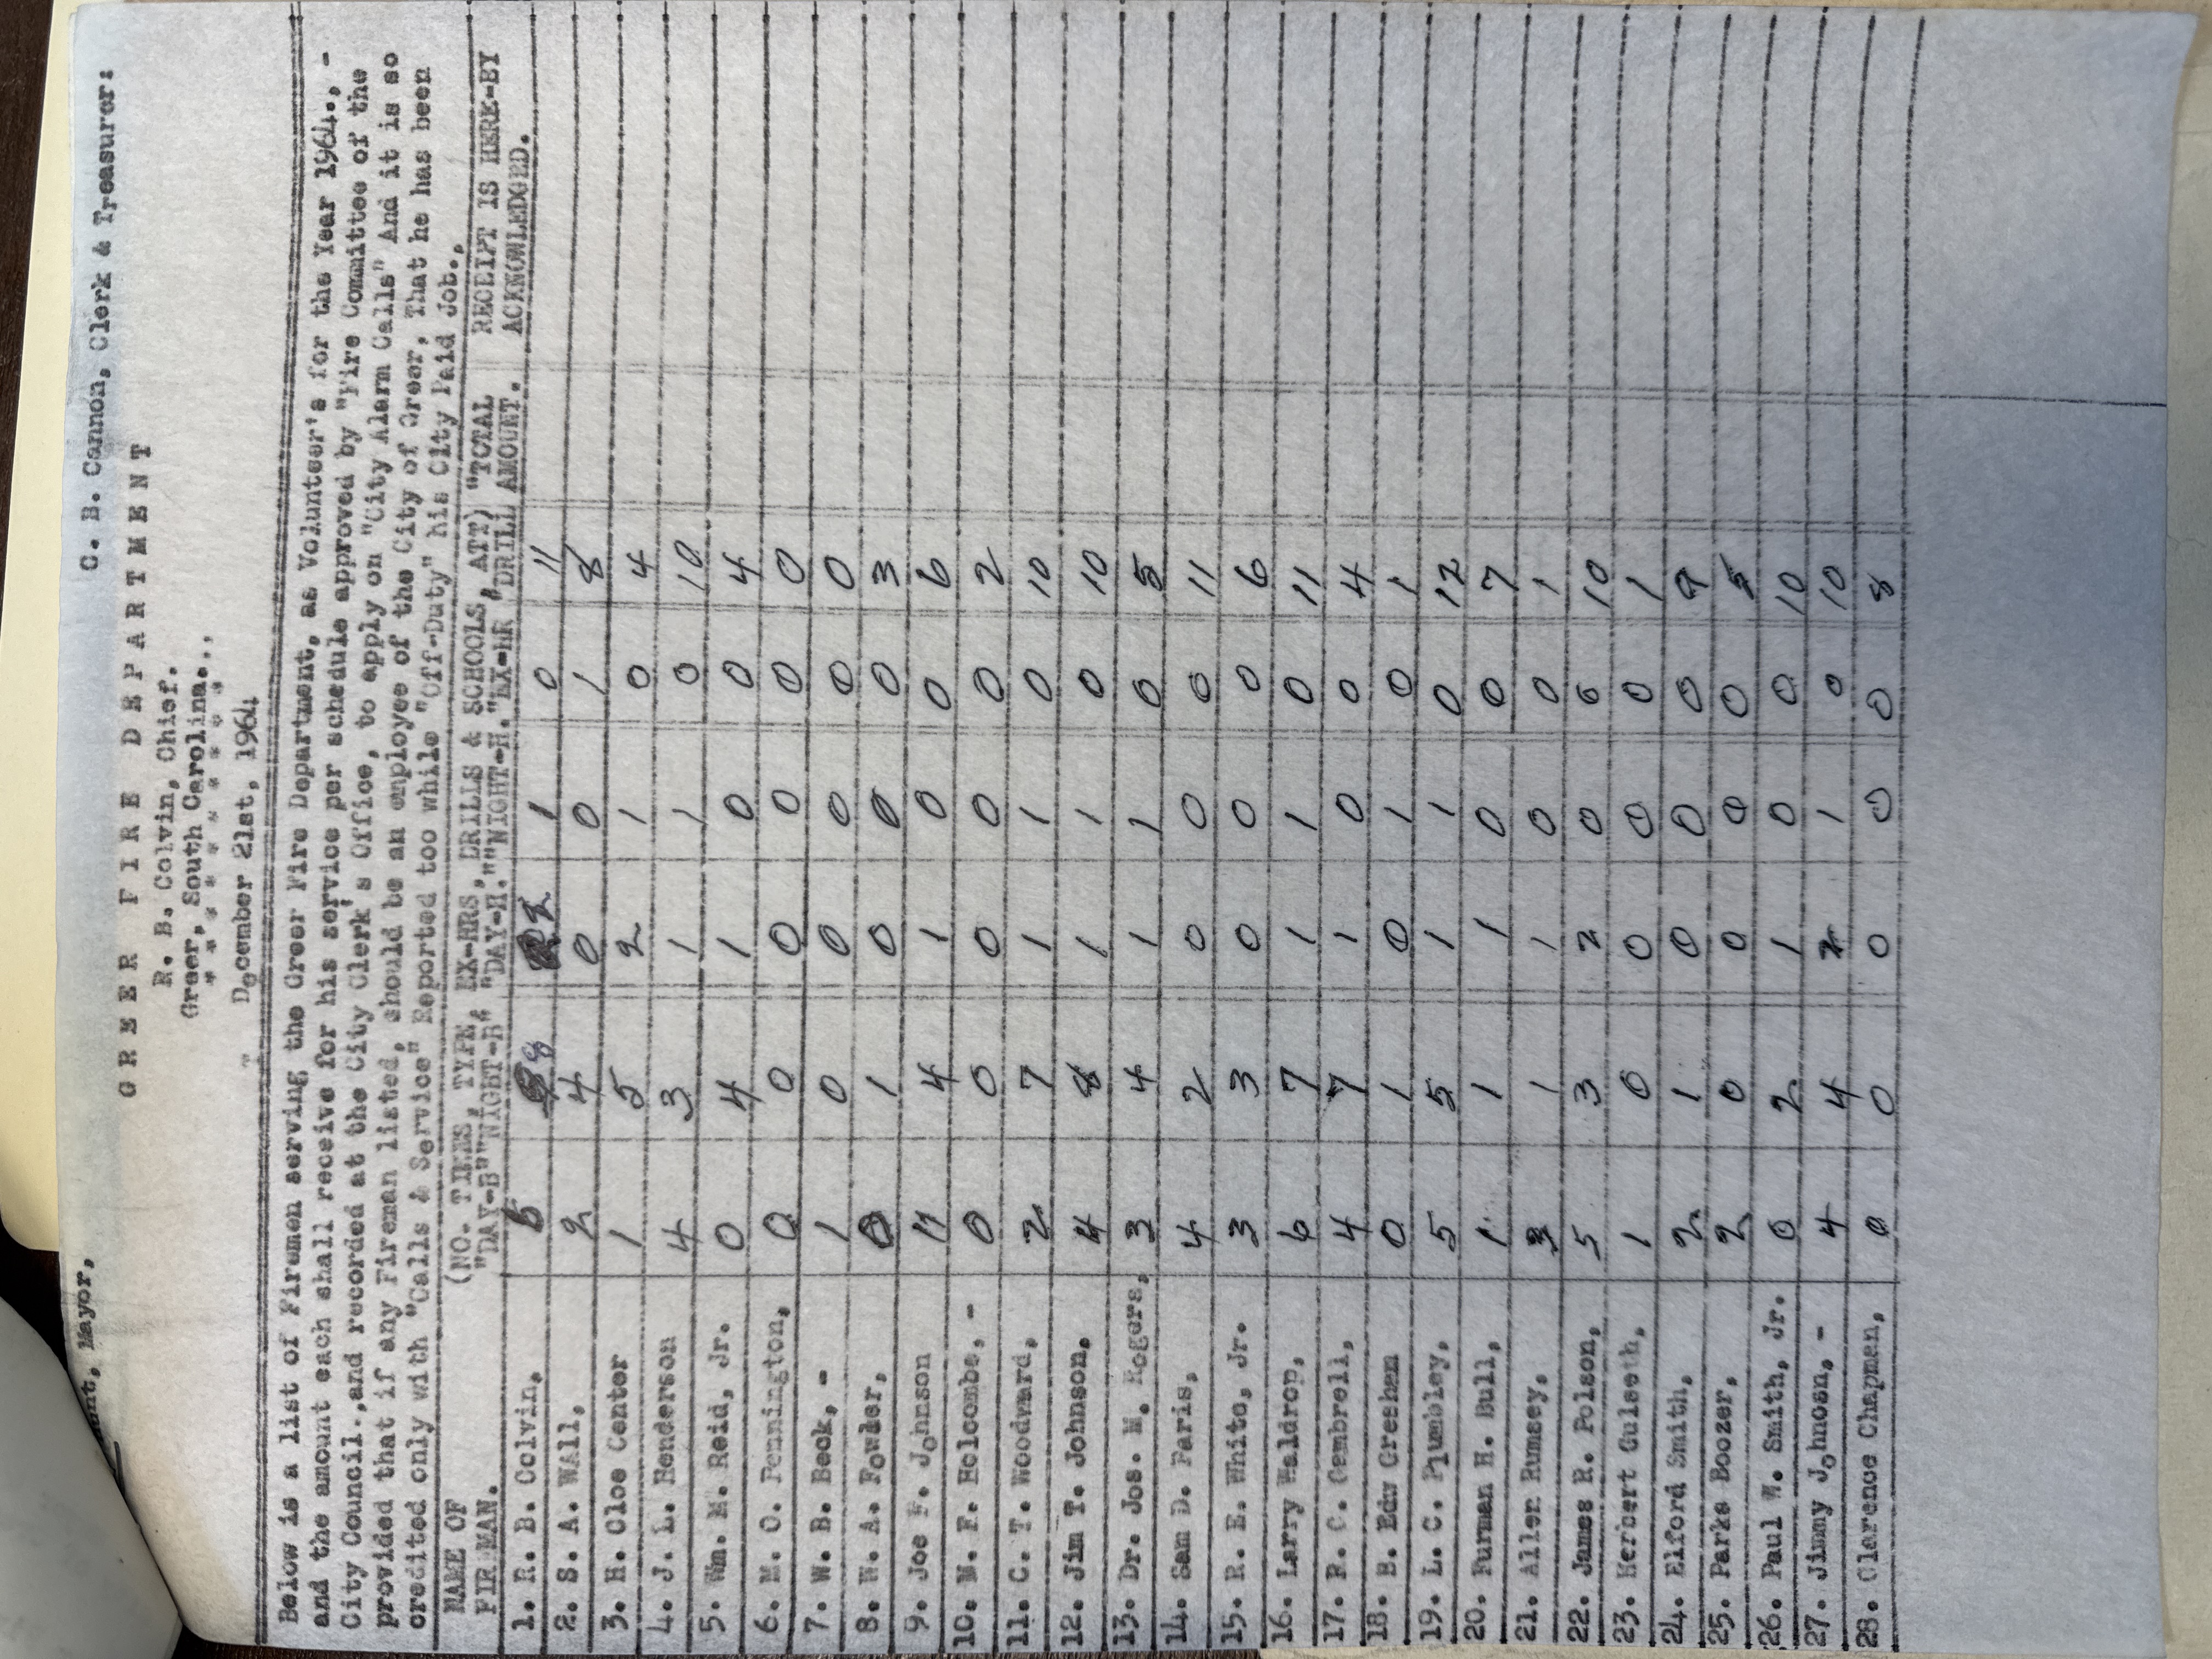 unt, Mayor,
C. B. Cannon, Clerk & Treasurer:
G R E E R F I R E D E P A R T M E N T
R. B. Colvin, Chief.
Greer, South Carolina..,
* * * * * * * * *
December 21st, 1964
Below is a list of Firemen serving the Greer Fire Department, as Volunteer's for the Year 1964., -
and the amount each shall receive for his service per schedule approved by "Fire Committee of the
City Council.,and recorded at the City Clerk's Office, to apply on "City Alarm Calls" And it is so
provided that if any Fireman listed, should be an employee of the City of Greer, That he has been
credited only with "Calls & Service" Reported too while "Off-Duty" his City Paid Job.,
NAME OF (NO. TIMES, TYPE, EX-HRS, DRILLS & SCHOOLS, ATT) "TOTAL RECEIPT IS HERE-BY
FIREMAN. "DAY-B""NIGHT-B" "DAY-H.""NIGHT-H."EX-HR "DRILL AMOUNT. ACKNOWLEDGED.
1. R. B. Colvin, 5 8 2 1 0 11
2. S. A. WAll, 2 4 0 0 1 8
3. H. Cloe Center 1 5 2 1 0 4
4. J. L. Henderson 4 3 1 1 0 10
5. Wm. M. Reid, Jr. 0 4 1 0 0 4
6. M. O. Pennington, 0 0 0 0 0 0
7. W. B. Beck, - 1 0 0 0 0 0
8. W. A. Fowler, 0 1 0 0 0 3
9. Joe F. Johnson 4 1 0 0 6
10. M. F. Holcombe, - 0 0 0 0 0 2
11. C. T. Woodward, 2 7 1 1 0 10
12. Jim T. Johnson, 4 8 1 1 0 10
13. Dr. Jos. M. Rogers, 3 4 1 1 0 5
14. Sam D. Paris, 4 2 0 0 0 11
15. R. E. White, Jr. 3 3 0 0 0 6
16. Larry Waldrop, 6 7 1 1 0 11
17. R. C. Cambrell, 4 7 1 0 0 4
18. B. Edw Gresham 0 1 0 1 0 1
19. L. C. Plumbley, 5 5 1 1 0 12
20. Furman H. Bull, 1 1 1 0 0 7
21. Allen Rumsey, 3 1 1 0 0 1
22. James R. Polson, 5 3 2 0 6 10
23. Herbert Gulseth, 1 0 0 0 0 1
24. Elford Smith, 2 1 0 0 0 9
25. Parks Boozer, 2 0 0 0 0
26. Paul W. Smith, Jr. 0 2 1 0 0 10
27. Jimmy Johnosn, - 4 4 2 1 0 10
28. Clarence Chapman, 0 0 0 0 0 8